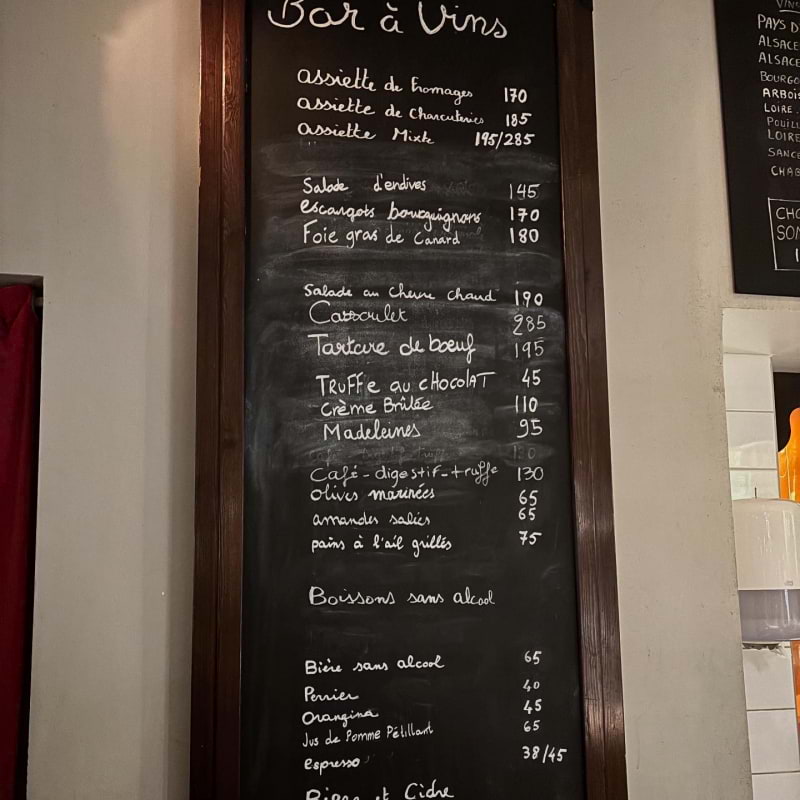 Bar à Vins
assiette de Fromages 170
assiette de Charcuteries 185
assiette Mixte 195/285
Salade d'endives 145
escargots bourguignons 170
Foie gras de Canard 180
Salade au Chevre chaud 190
Cassoulet 285
Tartare de boeuf 195
TRUFFE au CHOCOLAT 45
crème Brûlée 110
Madeleines 95
Café - digestif - truffe 130
olives marinées 65
amandes salées 65
pains à l'ail grillés 75
Boissons sans alcool
Bière sans alcool 65
Perrier 40
Orangina 45
Jus de Pomme Pétillant 65
espresso 38/45
et Cidre
VINS
PAYS D
ALSACE
ALSACE
BOURGO
ARBOIS
LOIRE
POUILL
LOIRE
SANCE
CHAB
CHO
SOM
1